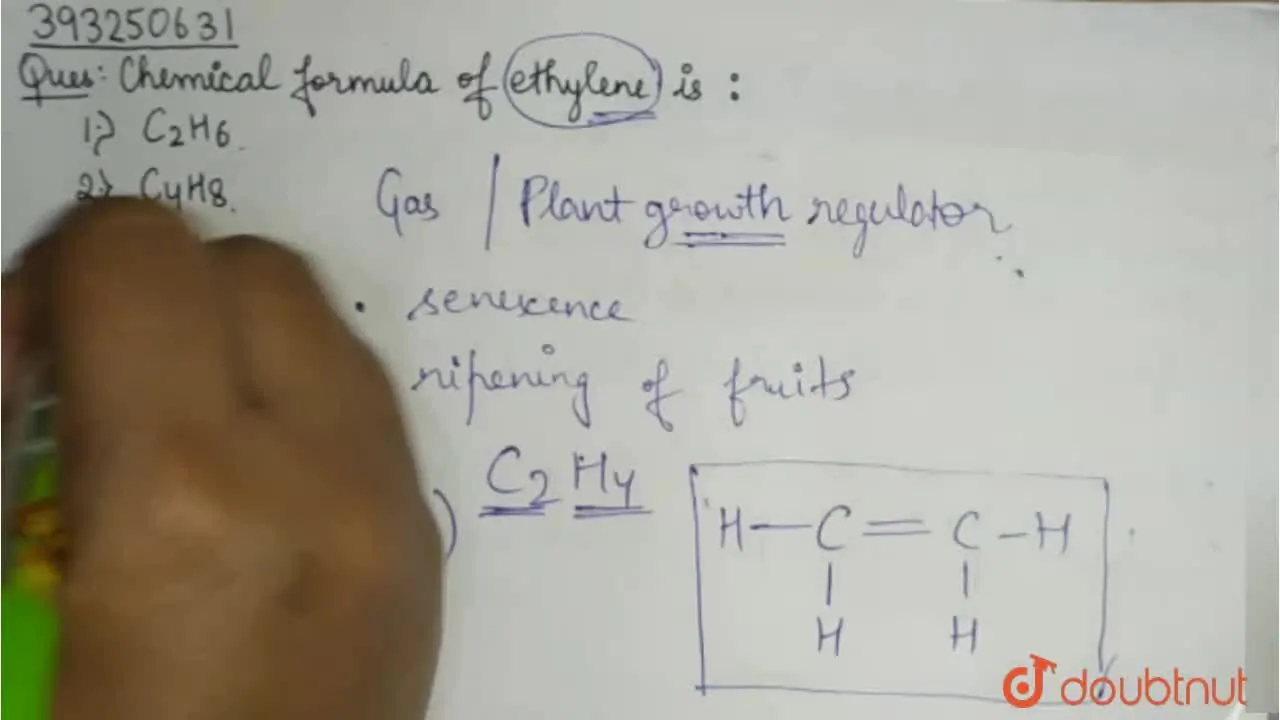 393250631
Ques: Chemical formula of ethylene is :
1) C2H6.
2) C4H8.
Gas | Plant growth regulator.
• senescence
ripening of fruits
) C2 H4
H — C = C — H
H H
doubtnut